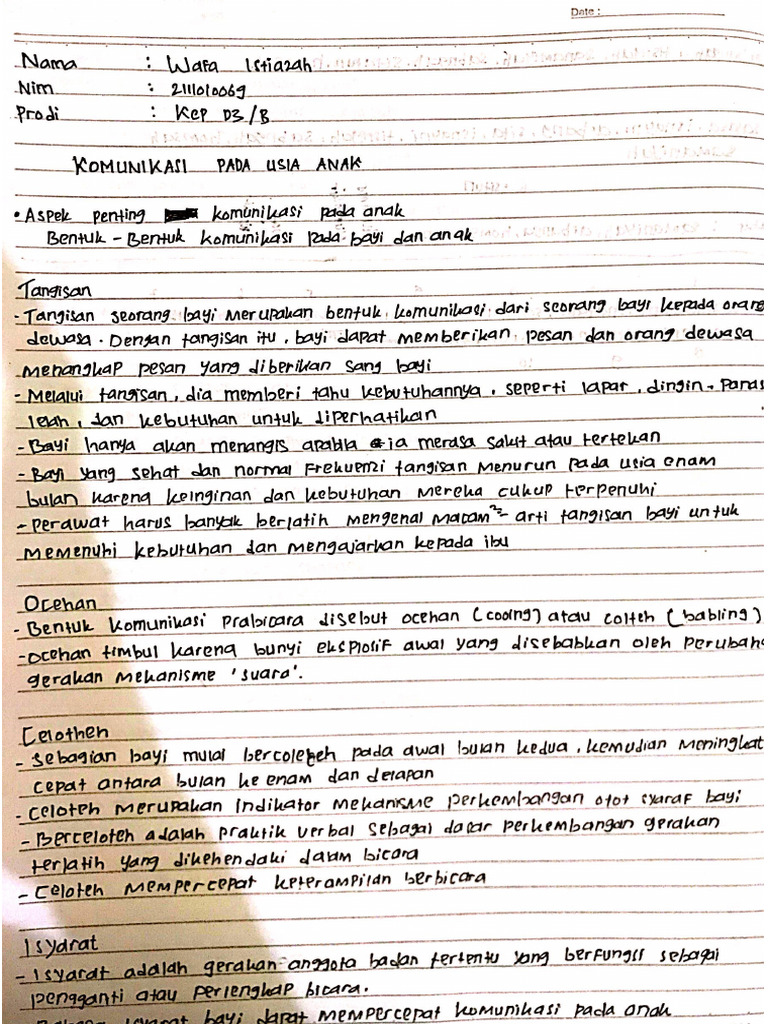 Date :
Nama : Wafa Istiazah
Nim : 2111010069
Prodi : Kep D3/B
KOMUNIKASI PADA USIA ANAK
• Aspek penting komunikasi pada anak
Bentuk - Bentuk komunikasi pada bayi dan anak
Tangisan
- Tangisan seorang bayi merupakan bentuk komunikasi dari seorang bayi kepada orang
dewasa. Dengan tangisan itu, bayi dapat memberikan pesan dan orang dewasa
menangkap pesan yang diberikan sang bayi
- Melalui tangisan, dia memberi tahu kebutuhannya, seperti lapar, dingin, panas
lelah, dan kebutuhan untuk diperhatikan
- Bayi hanya akan menangis apabila ia merasa sakit atau tertekan
- Bayi yang sehat dan normal frekuenzi tangisan menurun pada usia enam
bulan karena keinginan dan kebutuhan mereka cukup terpenuhi
- perawat harus banyak berlatih mengenal macam²- arti tangisan bayi untuk
memenuhi kebutuhan dan mengajarkan kepada ibu
Ocehan
- Bentuk komunikasi prabicara disebut ocehan (cooing) atau colteh (babling)
- ocehan timbul karena bunyi eksplosif awal yang disebabkan oleh perubaha
gerakan mekanisme 'suara'.
Celotheh
- Sebagian bayi mulai bercoleteh pada awal bulan kedua, kemudian meningkat
cepat antara bulan ke enam dan delapan
- celoteh merupakan indikator mekanisme perkembangan otot syaraf bayi
- Berceloteh adalah praktik verbal sebagai dasar perkembangan gerakan
terlatih yang dikehendaki dalam bicara
- Celoteh mempercepat keterampilan berbicara
Isyarat
- Isyarat adalah gerakan anggota badan tertentu yang berfungsi sebagai
pengganti atau perlengkap bicara.
isyarat bayi dapat mempercepat komunikasi pada anak